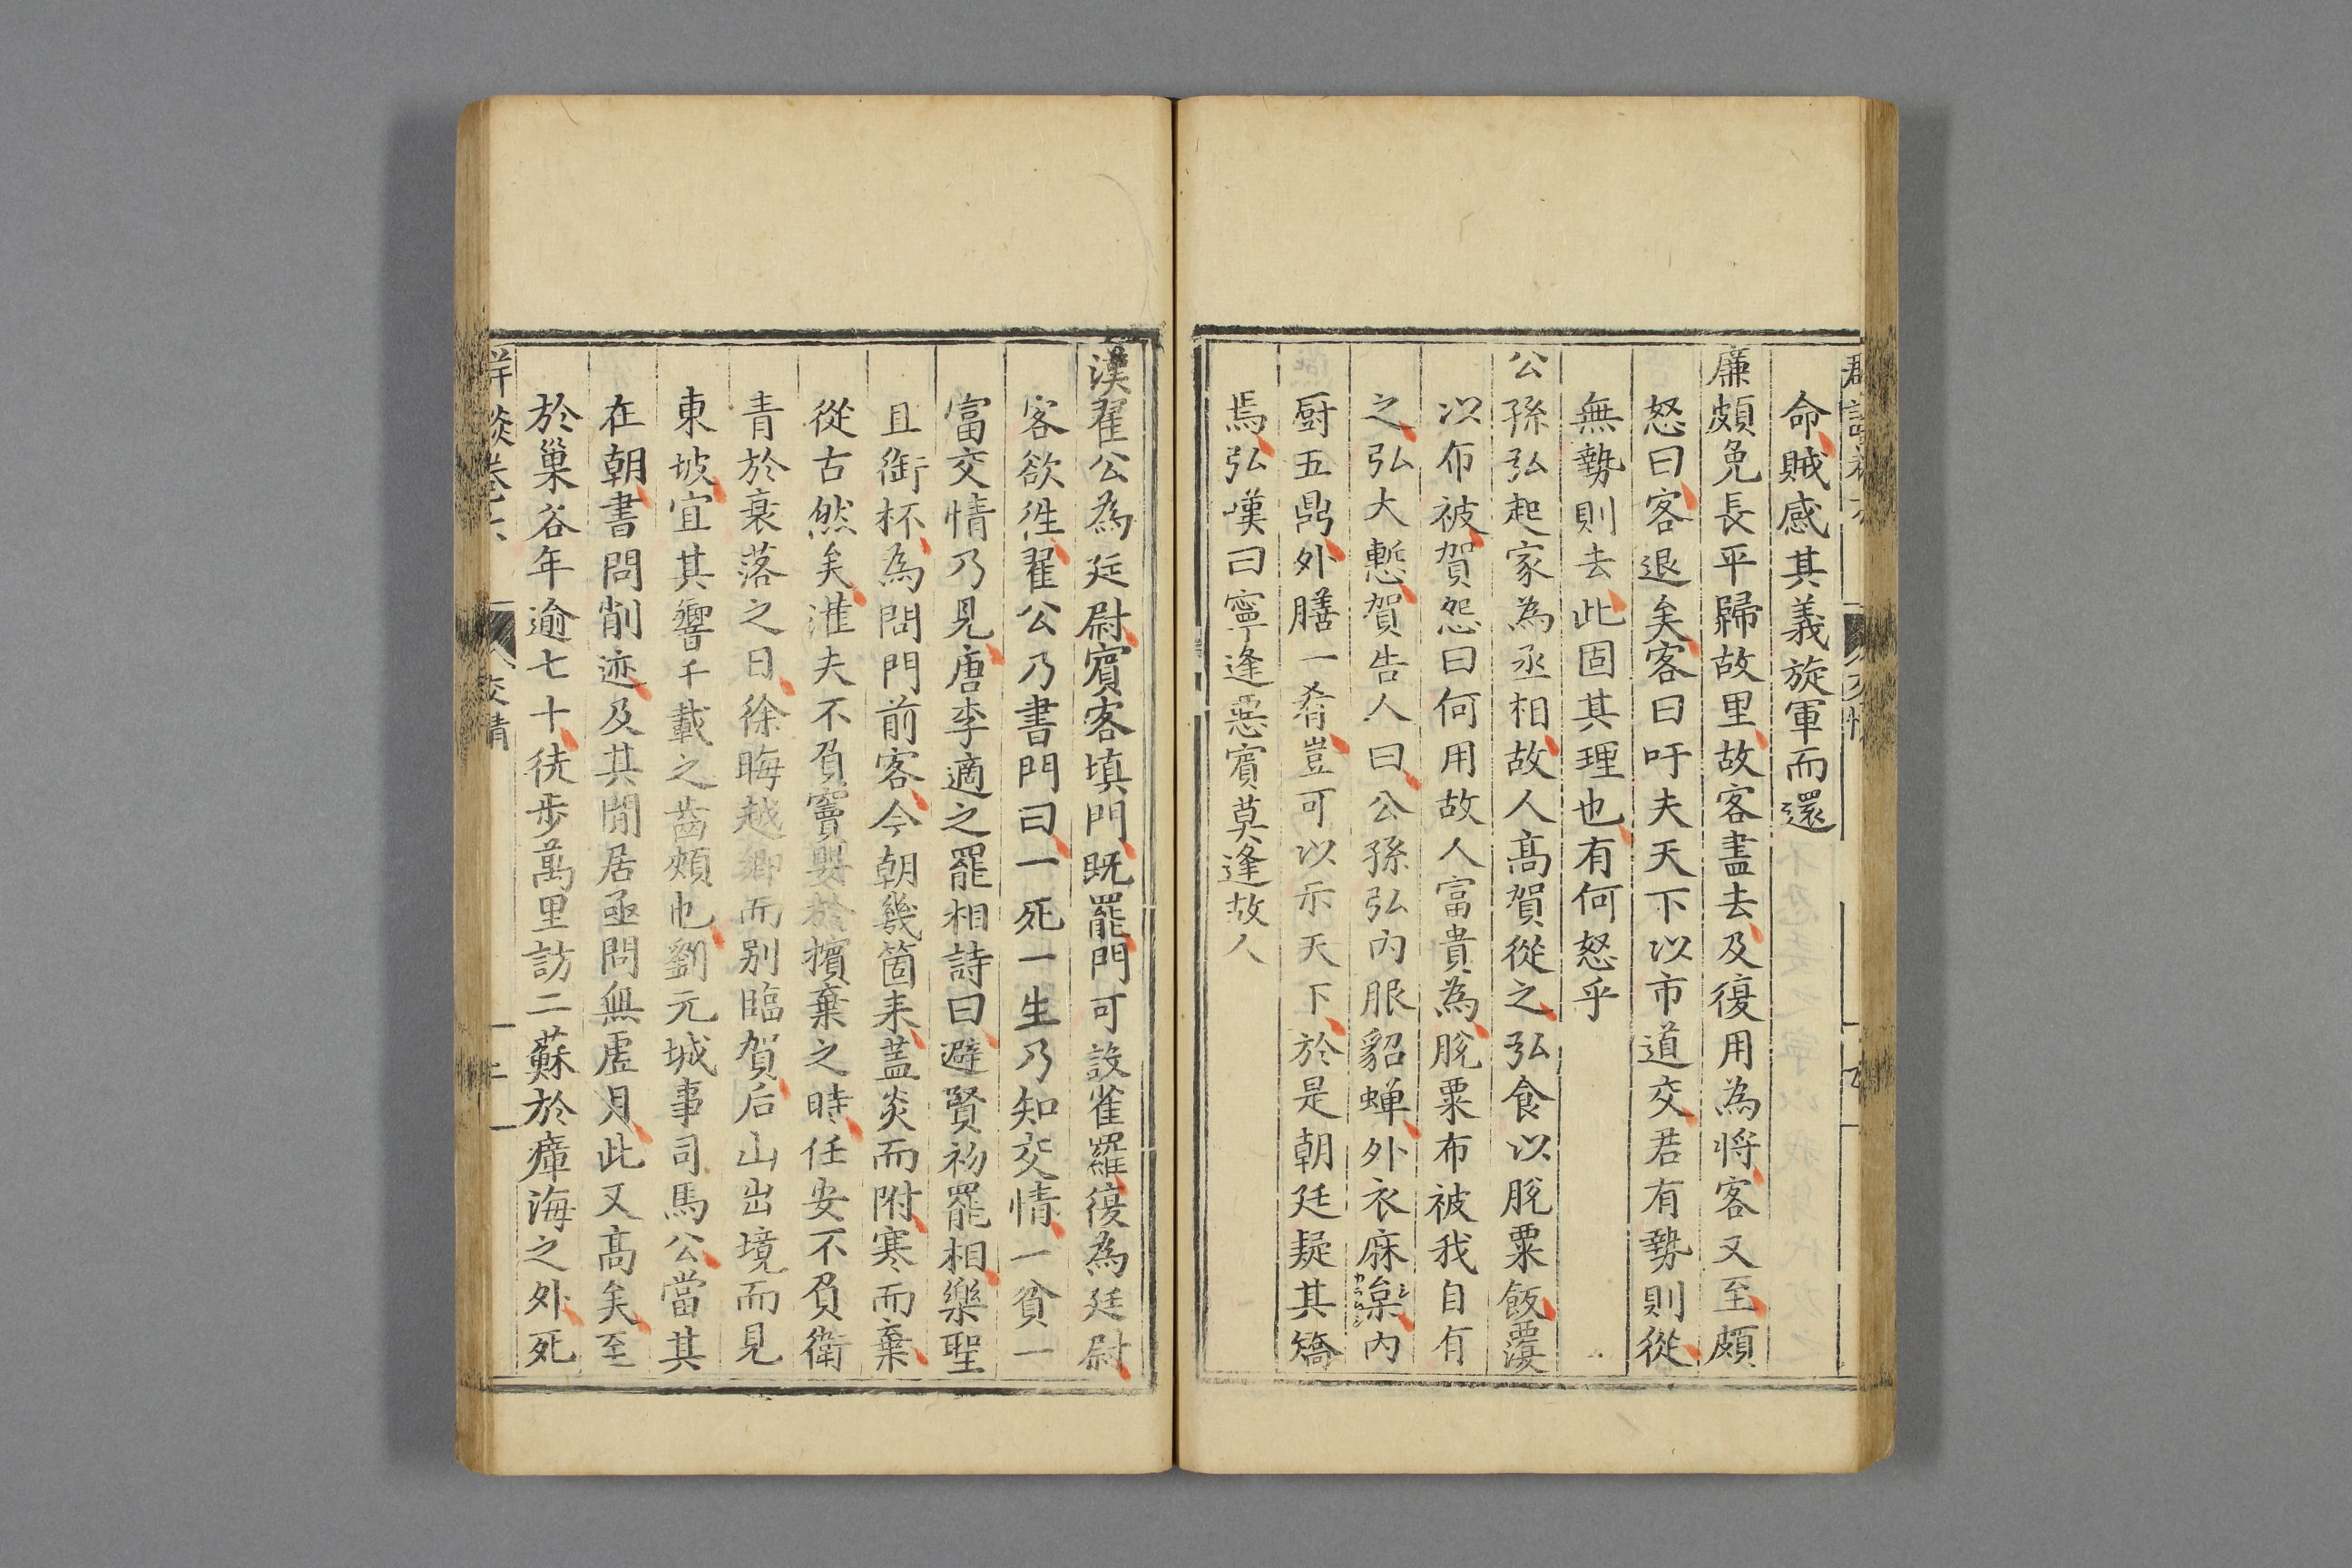 命賊感其義旋軍而還
廉頗免長平歸故里故客盡去及復用為將客又至頗
怒曰客退矣客曰吁夫天下以市道交君有勢則從
無勢則去此固其理也有何怒乎
公孫弘起家為丞相故人高賀從之弘食以脫粟飯覆
以布被賀怨曰何用故人富貴為脫粟布被我自有
之弘大慙賀告人曰公孫弘內服貂蟬外衣麻枲內
厨五鼎外膳一肴豈可以示天下於是朝廷疑其矯
焉弘嘆曰寧逢惡賓莫逢故人
漢翟公為廷尉賓客填門既罷門可設雀羅復為廷尉
客欲徃翟公乃書門曰一死一生乃知交情一貧一
富交情乃見唐李適之罷相詩曰避賢初罷相樂聖
且銜杯為問門前客今朝幾箇来蓋炎而附寒而棄
從古然矣灌夫不負竇嬰於擯棄之時任安不負衛
青於衰落之日徐晦越鄉而別臨賀后山出境而見
東坡宜其響千載之齒頰也劉元城事司馬公當其
在朝書問削迹及其閒居亟問無虛月此又高矣至
於巢谷年逾七十徒步萬里訪二蘇於瘴海之外死